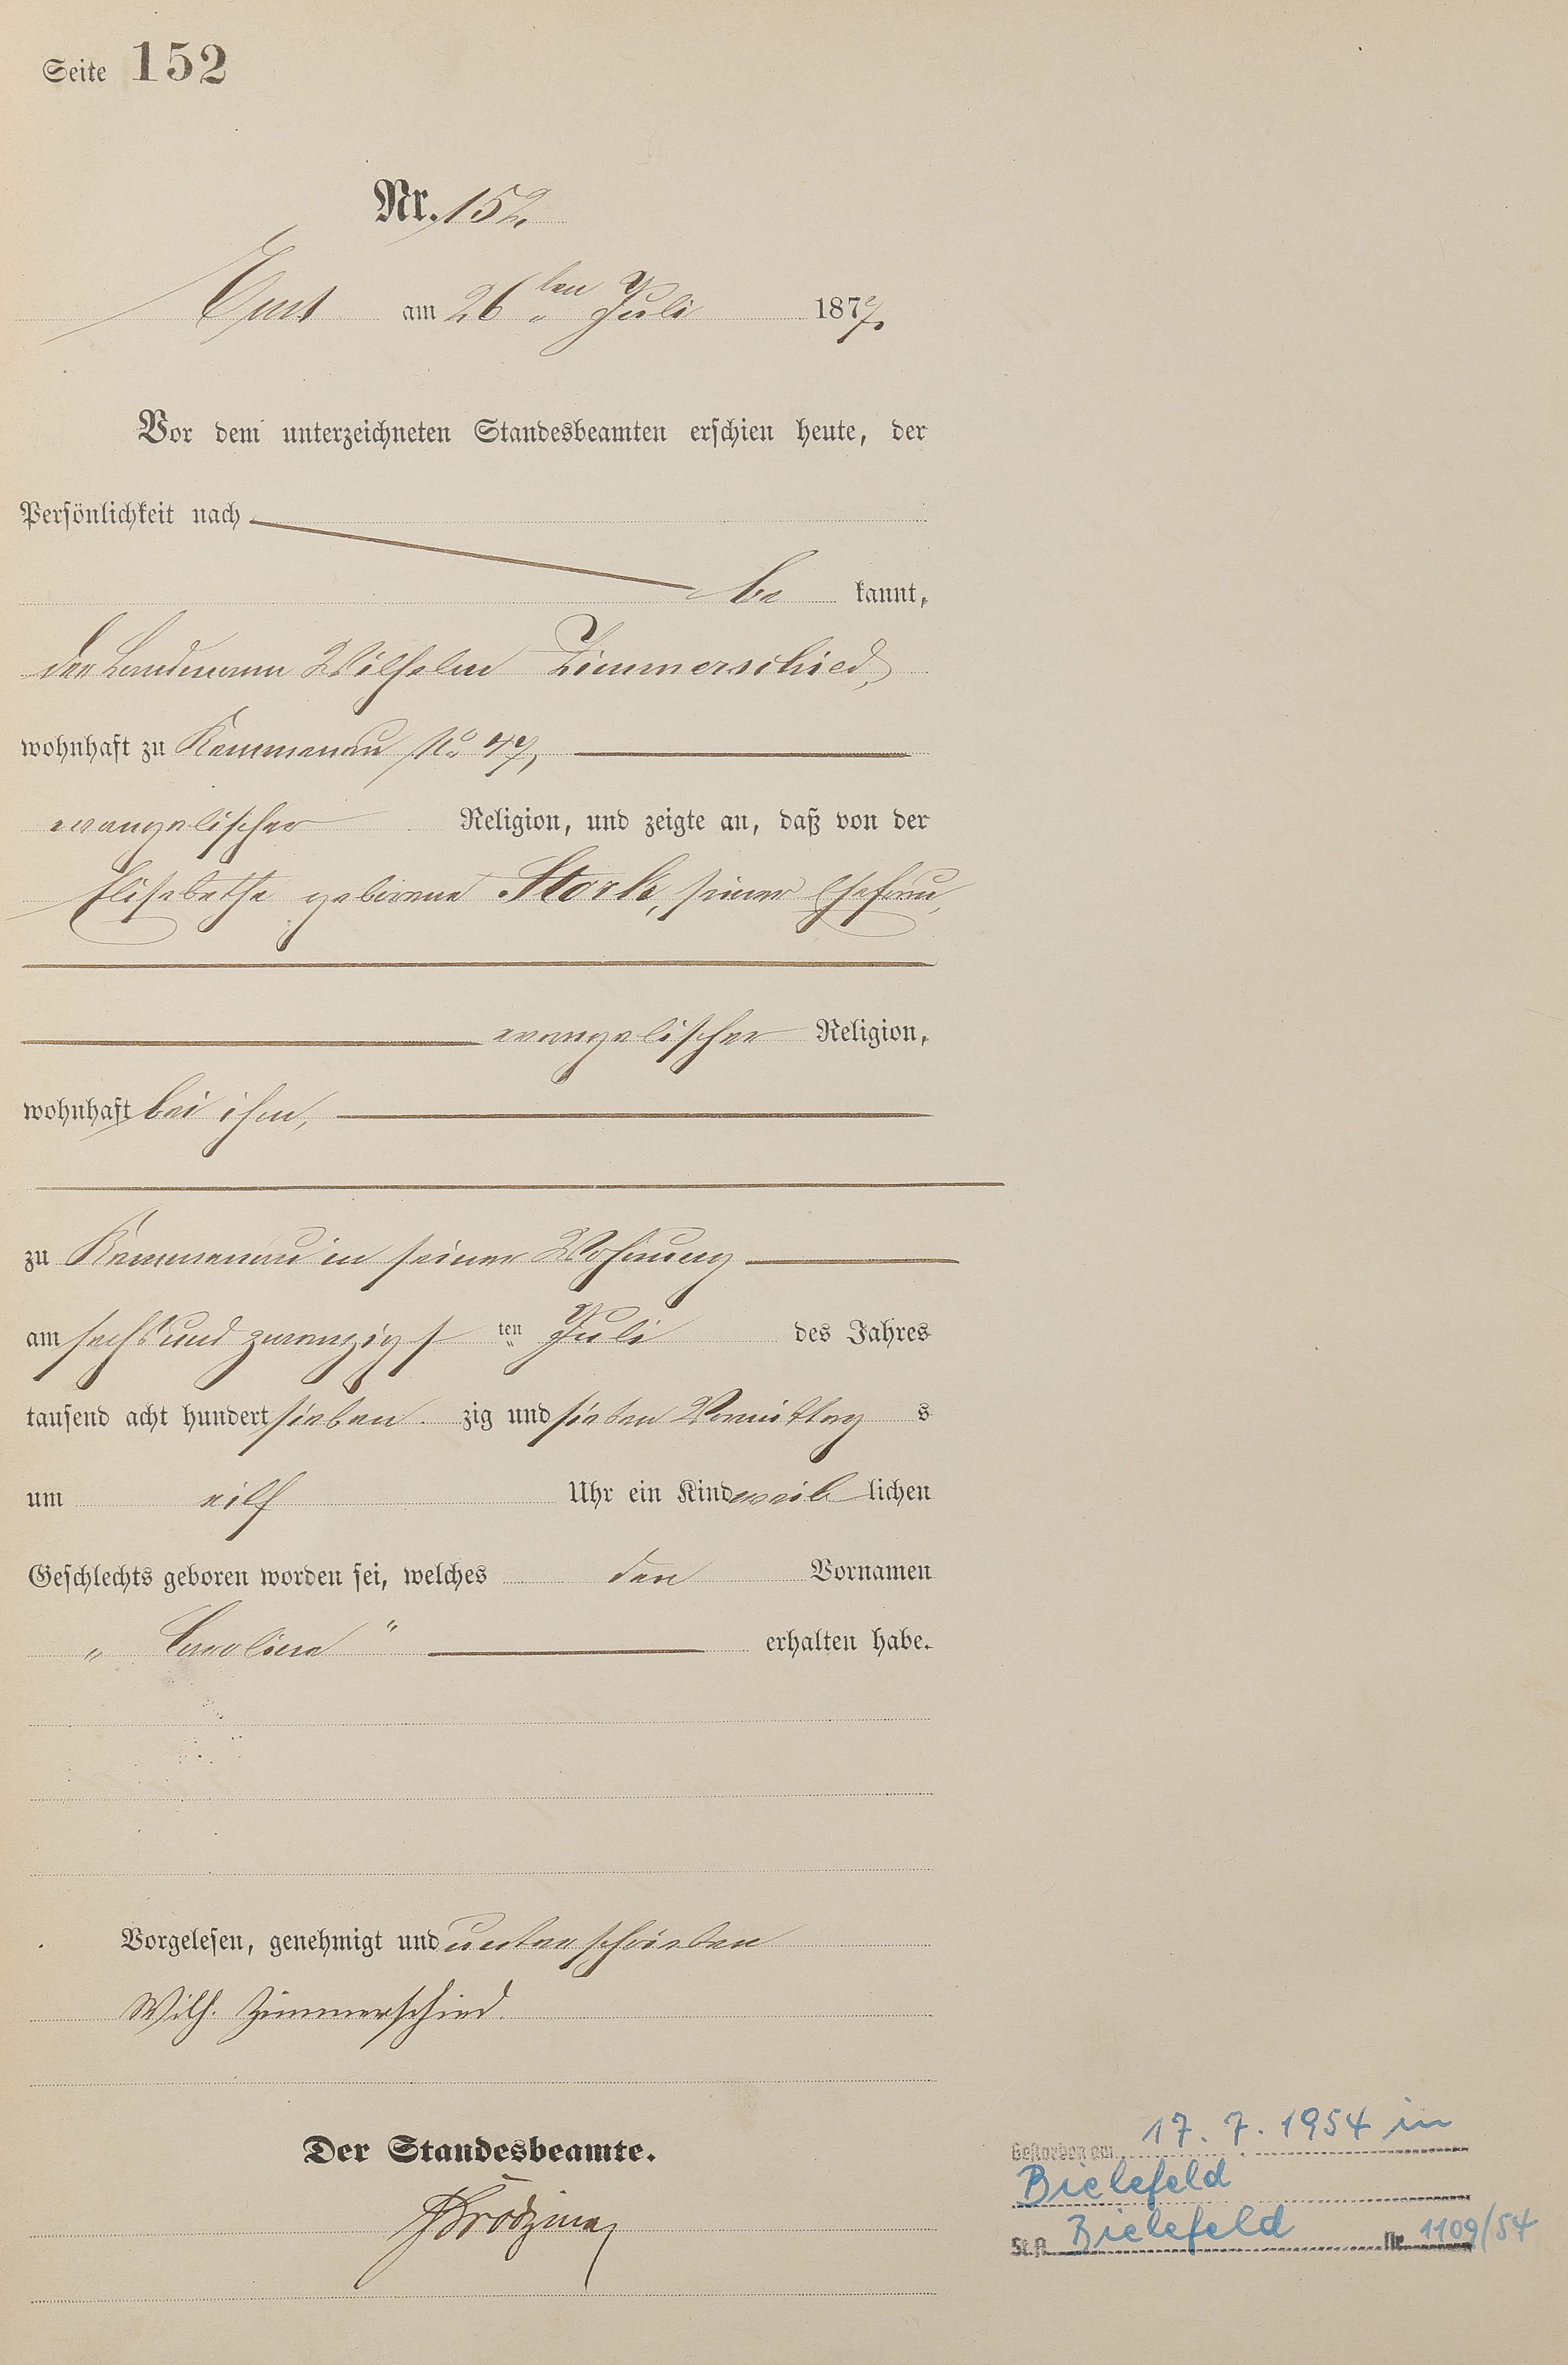 Seite 152
Nr. 152.
Ems am 26ten Juli 1877.
Vor dem unterzeichneten Standesbeamten erschien heute, der
Persönlichkeit nach
be kannt,
der Landmann Wilhelm Zimmerschied,
wohnhaft zu Kemmenau No 47,
evangelischer Religion, und zeigte an, daß von der
Elisabethe geborene Stork, seiner Ehefrau,
evangelischer Religion,
wohnhaft bei ihm,
zu Kemmenau in seiner Wohnung
am sechs und zwanzigs ten Juli des Jahres
tausend acht hundert sieben zig und sieben Vormittag s
um eilf Uhr ein Kind weib lichen
Geschlechts geboren worden sei, welches den Vornamen
„ Caroline " erhalten habe.
Vorgelesen, genehmigt und unterschrieben
Wilh. Zimmerschied.
Der Standesbeamte.
Gestorben am 17. 7. 1954 in
Bielefeld
St.A. Bielefeld Nr. 1109/54